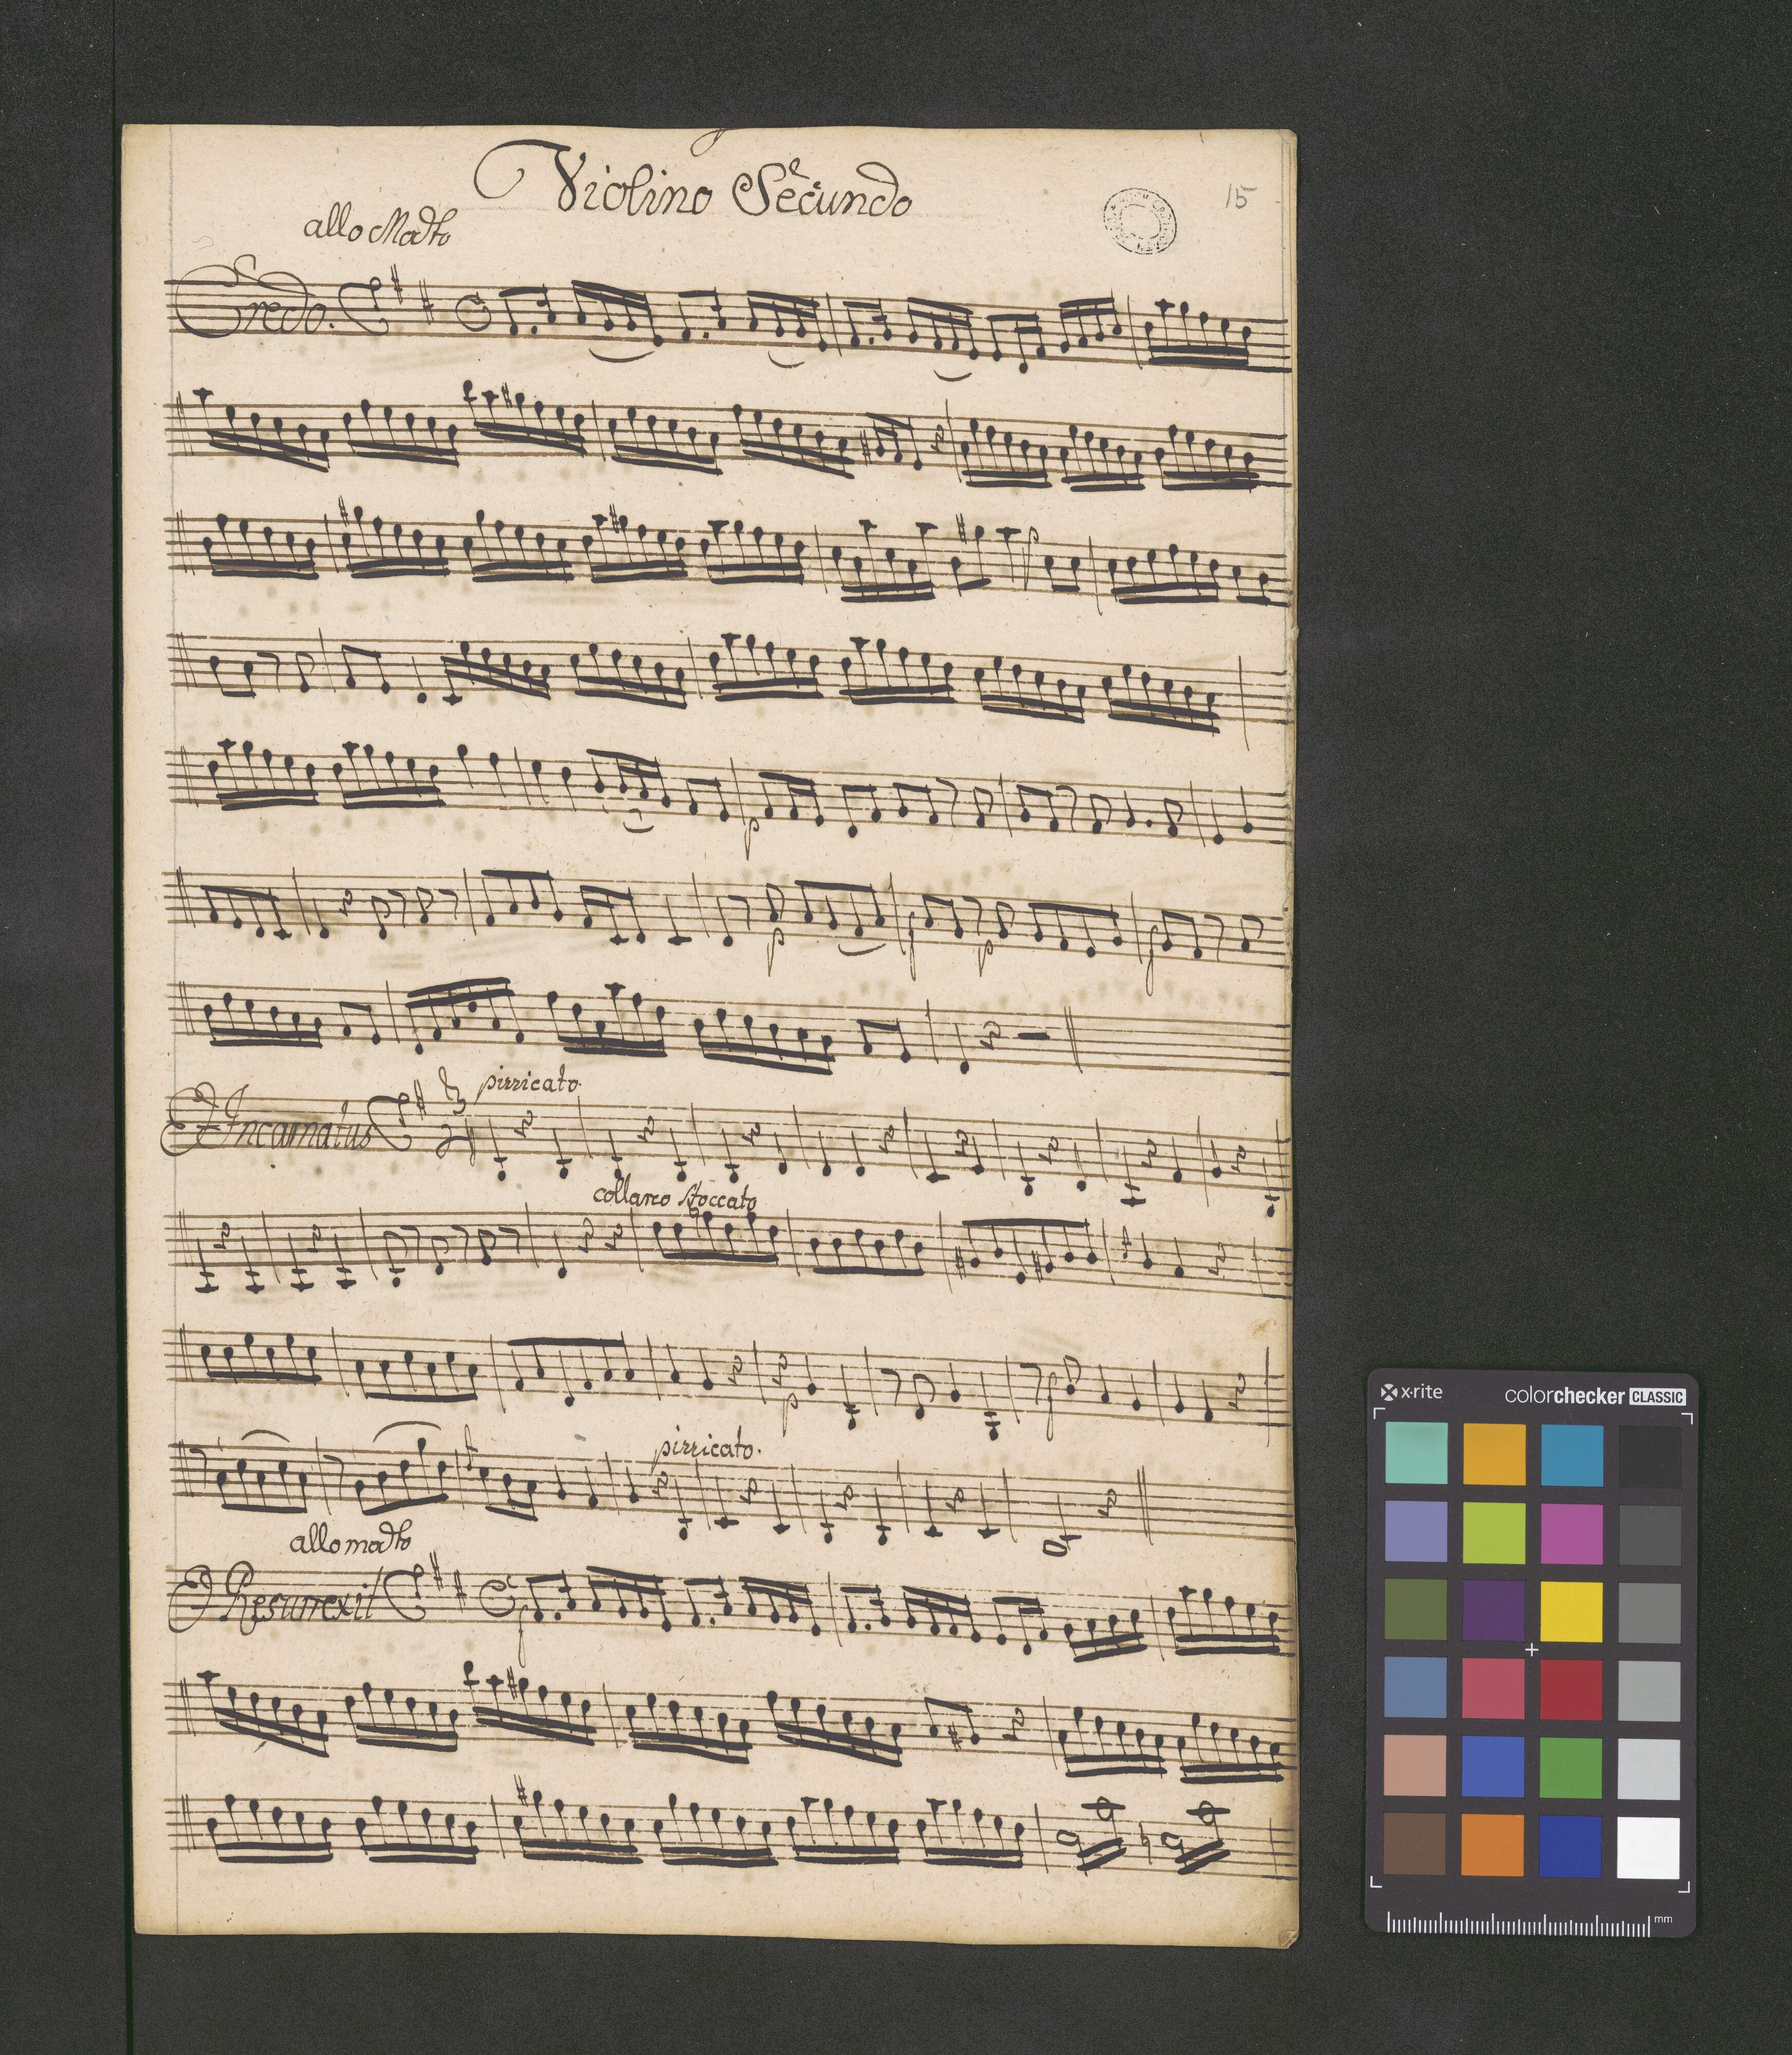 Violino Secundo
15
allo Modto
Credo.
p
p f p f
pizzicato.
Et Incarnatus
3
2
collarco Stoccato
p f
pizzicato.
allo modto
Et Resurrexit
f
x-rite colorchecker CLASSIC
mm